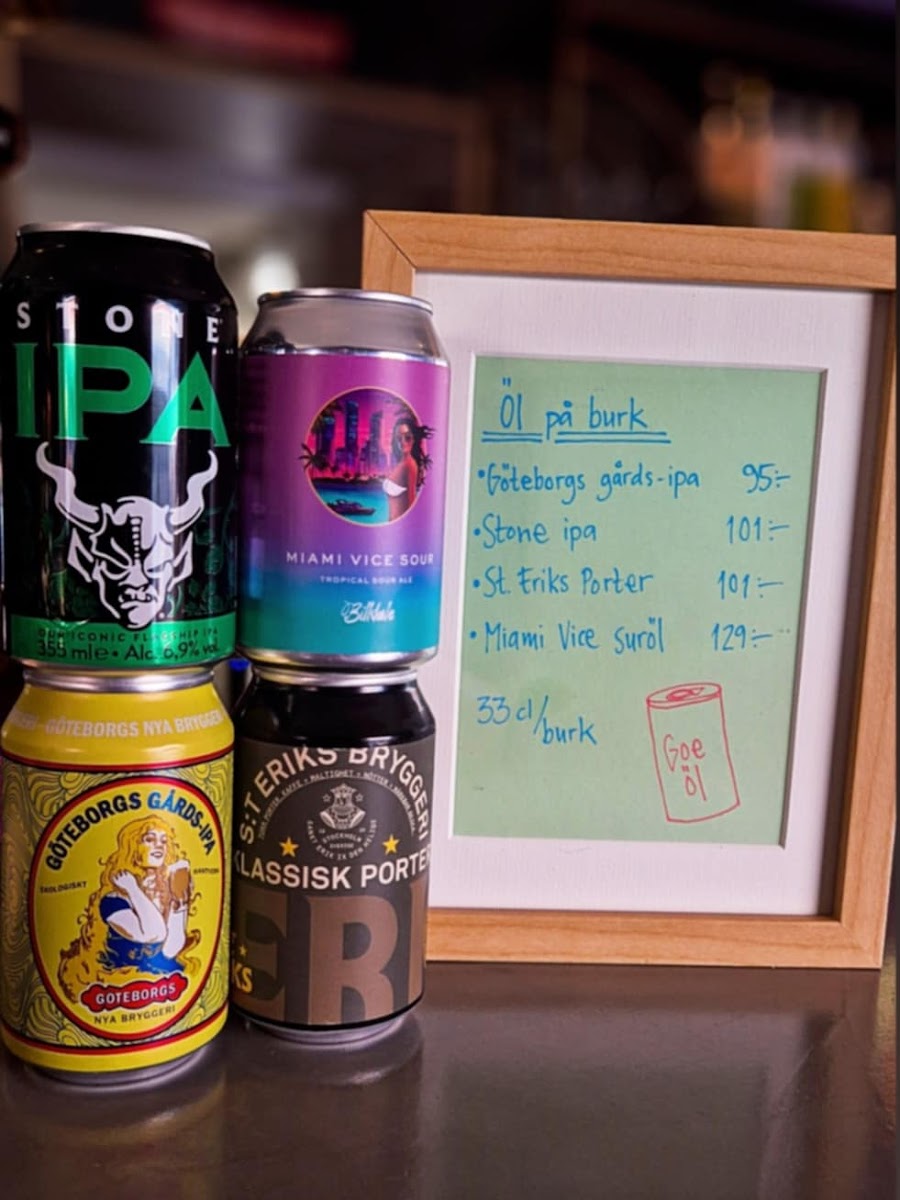 STONE
IPA
OUR ICONIC FLAGSHIP IPA
355 ml e • Alc. 6,9% vol.
MIAMI VICE SOUR
TROPICAL SOUR ALE
Billdals
GÖTEBORGS NYA BRYGGERI
GÖTEBORGS GÅRDS-IPA
EKOLOGISKT
GÖTEBORGS
NYA BRYGGERI
S:T ERIKS BRYGGERI
STOCKHOLM
KLASSISK PORTER
ERI
KS
Öl på burk
•Göteborgs gårds-ipa 95:-
•Stone ipa 101:-
•St. Eriks Porter 101:-
•Miami Vice suröl 129:-
33 cl/burk
Goe
öl